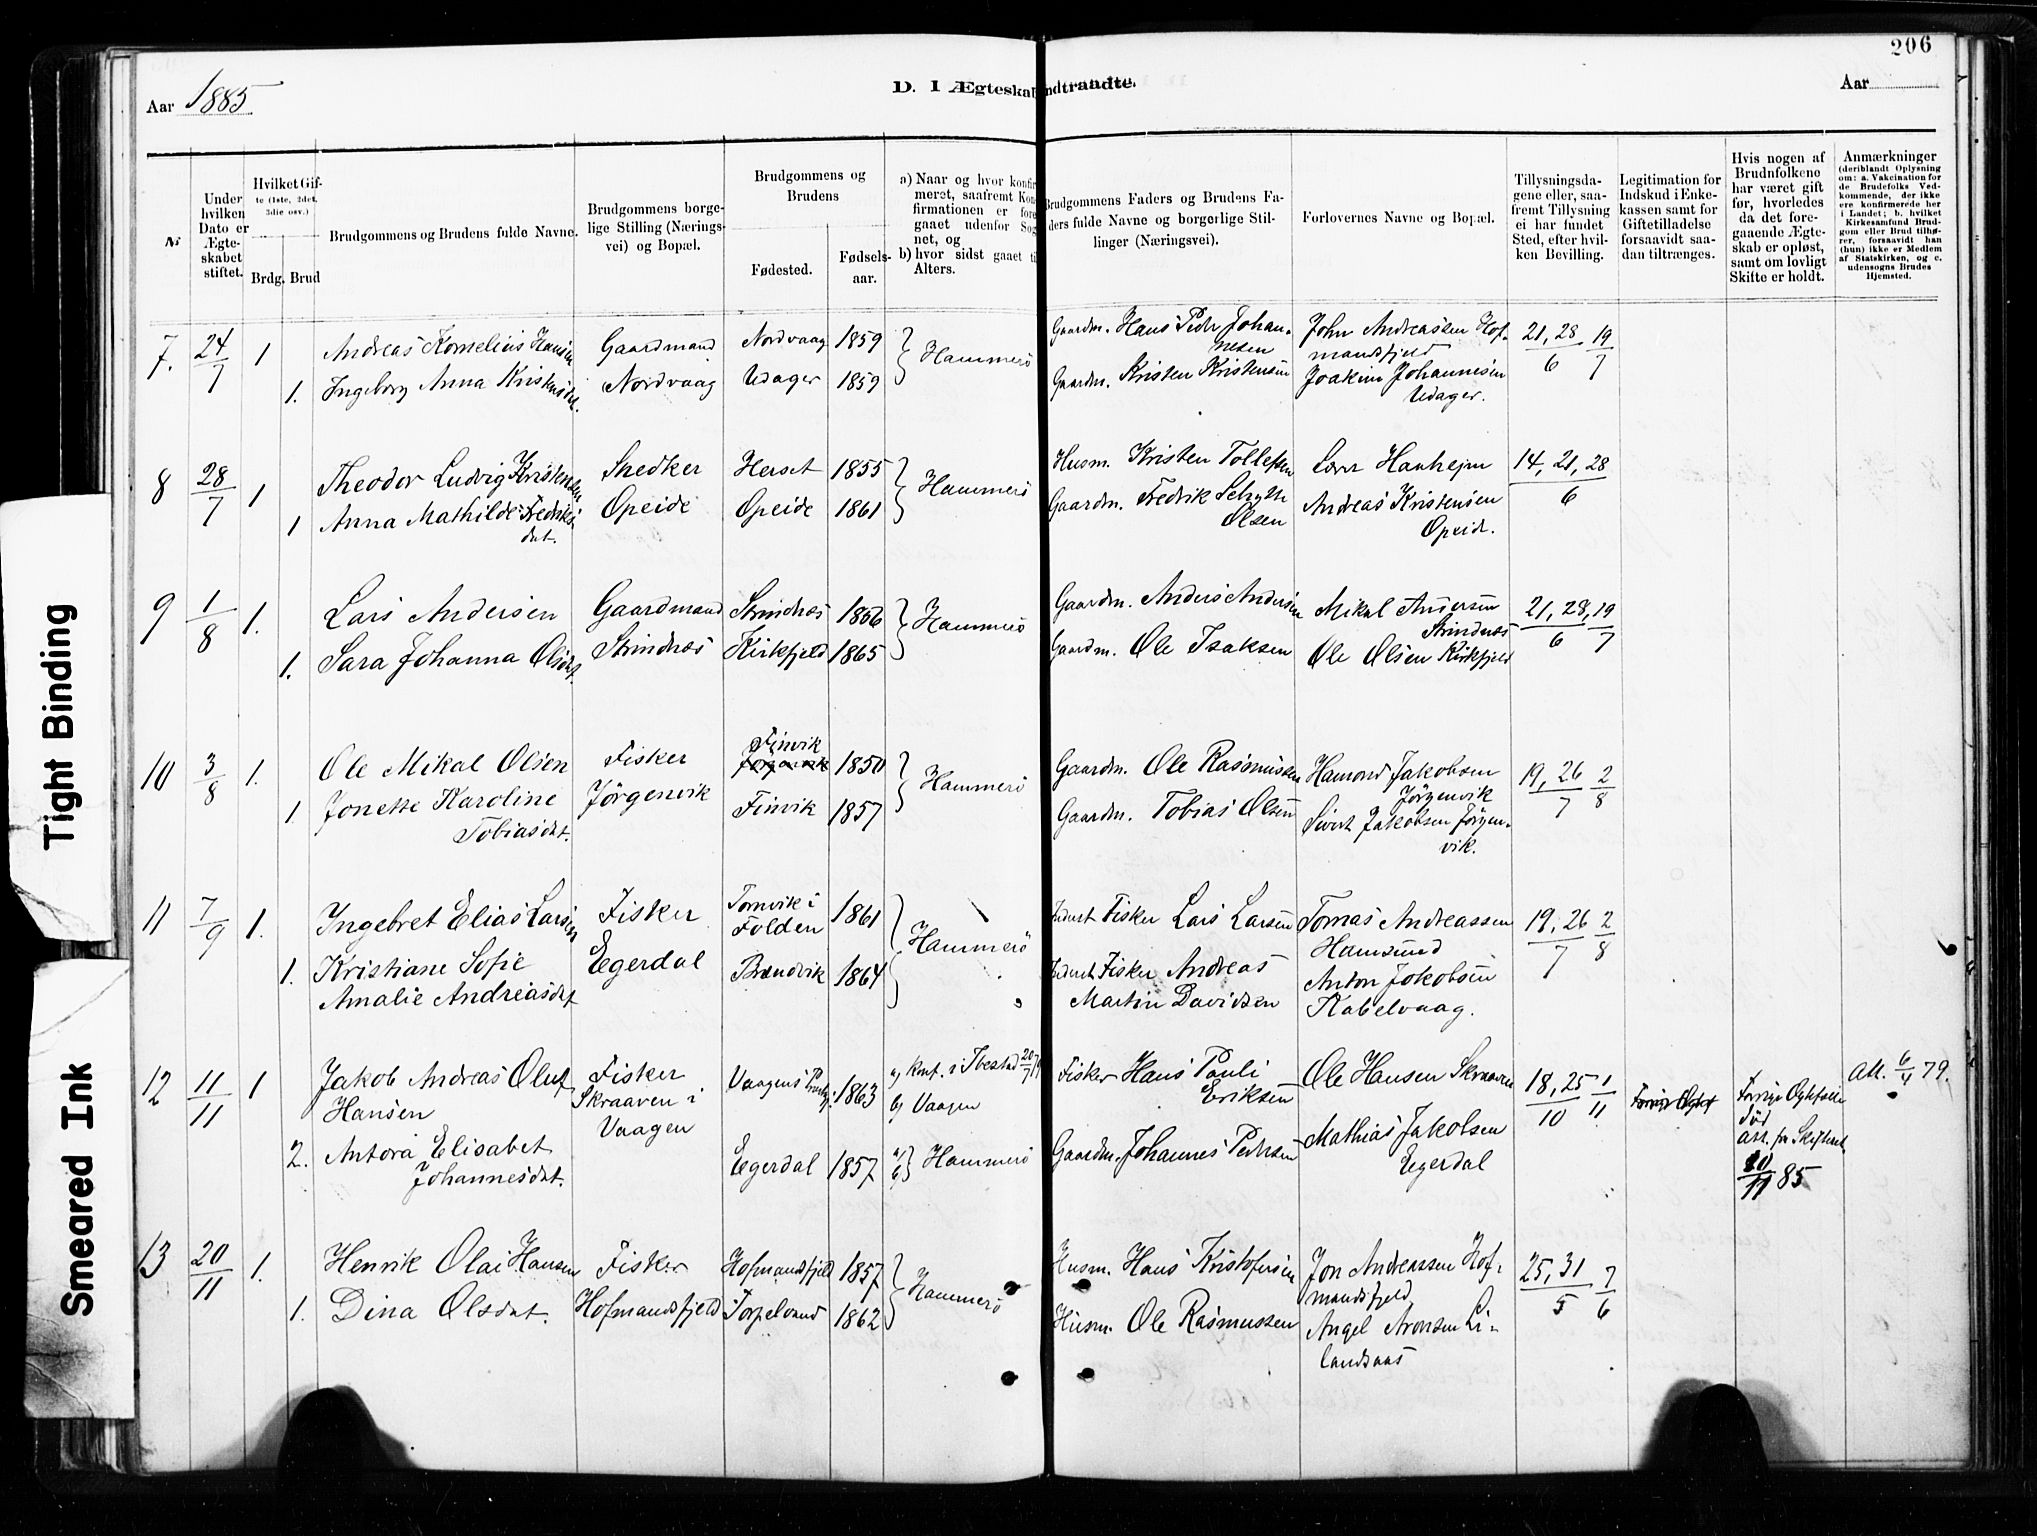 206
Aar 1885
D. I Ægteskab indtraadte.
Aar
№
Under hvilken Dato er Ægteskabet stiftet.
Hvilket Gifte (1ste, 2det, 3die osv.)
Brdg. Brud
Brudgommens og Brudens fulde Navne.
Brudgommens borgelige Stilling (Næringsvei) og Bopæl.
Brudgommens og Brudens
Fødested.
Fødselsaar.
a) Naar og hvor konfirmeret, saafremt Konfirmationen er foregaaet udenfor Sognet, og
b) hvor sidst gaaet til Alters.
Brudgommens Faders og Brudens Faders fulde Navne og borgerlige Stillinger (Næringsvei).
Forlovernes Navne og Bopæl.
Tillysningsdagene eller, saafremt Tillysning ei har fundet Sted, efter hvilken Bevilling.
Legitimation for Indskud i Enkekassen samt for Giftetilladelse forsaavidt saadan tiltrænges.
Hvis nogen af Brudnfolkene har været gift før, hvorledes da det foregaaende Ægteskab er opløst, samt om lovligt Skifte er holdt.
Anmærkninger (deriblandt Oplysning om: a. Vakcination for de Brudefolks Vedkommende, der ikke ere konfirmerede her i Landet; b. hvilket Kirkesamfund Brudgom eller Brud tilhører, forsaavidt han (hun) ikke er Medlem af Statskirken, og c. udensogns Brudes Hjemsted.
7. 24/7 1 Andreas Kornelius Hansen Gaardmand Nordvaag 1859 Hammerö Gaardm. Hans Peder Johannesen John Andreassen Hofmandsfjeld 21, 28/6 19/7
1. Ingeborg Anna Kristensdat. Nordvaag Udager 1859 Gaardm. Kristen Kristensen Joakim Johannesen Udager.
8 28/7 1 Theodor Ludvig Kristensen Snedker Herset 1855 Hammerö Husm. Kristen Tollefsen 14, 21, 28/6
1 Anna Mathilde Fredriksdat. Opeide Opeide 1861 Gaardm. Fredrik Olsen Andreas Kristensen Opeid.
9 1/8 1. Lars Andersen Gaardmand Strindnæs 1856 Hammerö Gaardm. Anders Andersen Mikal Andersen Strindnæs 21, 28/6 19/7
1. Sara Johanna Olsdat. Strindnæs Kirkfjeld 1865 Gaardm. Ole Isaksen Ole Olsen Kirkfjeld
10 3/8 1. Ole Mikal Olsen Fisker Finvik 1850 Hammerö Gaardm. Ole Rasmussen Hamond Jakobsen Jörgenvik 19, 26/7 2/8
1. Jonette Karoline Tobiasdat. Jörgenvik Finvik 1857 Gaardm. Tobias Olsen Sivert Jakobsen Jörgenvik.
11 7/9 1. Ingebret Elias Larsen Fisker Tornvik i Folden 1861 Hammerö Inderst Fisker Lars Larsen Tomas Andreassen Hamsund 19, 26/7 2/8
1. Kristiane Sofie Amalie Andreasdat Egerdal Brændvik 1864 Inderst Fisker Andreas Martin Davidsen Anton Jakobsen Kabelvaag.
12 11/11 1 Jakob Andreas Oluf Hansen Fisker Skraaven i Vaagen Vaagens 1863 a) Knf. i Ibestad 20/7 79 b) Vaagen Fisker Hans Pauli Eriksen Ole Hansen Skraaven 18, 25/10 1/11 Forrige Ægtefælle død Att. fra Skifteret 10/11 85 Att. 6/4 79.
2. Antora Elisabet Johannesdat. Egerdal 1857 a) b) Hammerö Gaardm. Johannes Pedersen Mathias Jakobsen Egerdal
13 20/11 1. Henrik Olai Hansen Fisker Hofmandsfjeld 1857 Hammerö Husm. Hans Kristofersen Jon Andreassen Hofmandsfjeld 25, 31/5 7/6
1. Dina Olsdat. Hofmandsfjeld Torpelvand 1862 Husm. Ole Rasmussen Angel Aronsen Lilandsaas
Tight Binding
Smeared Ink